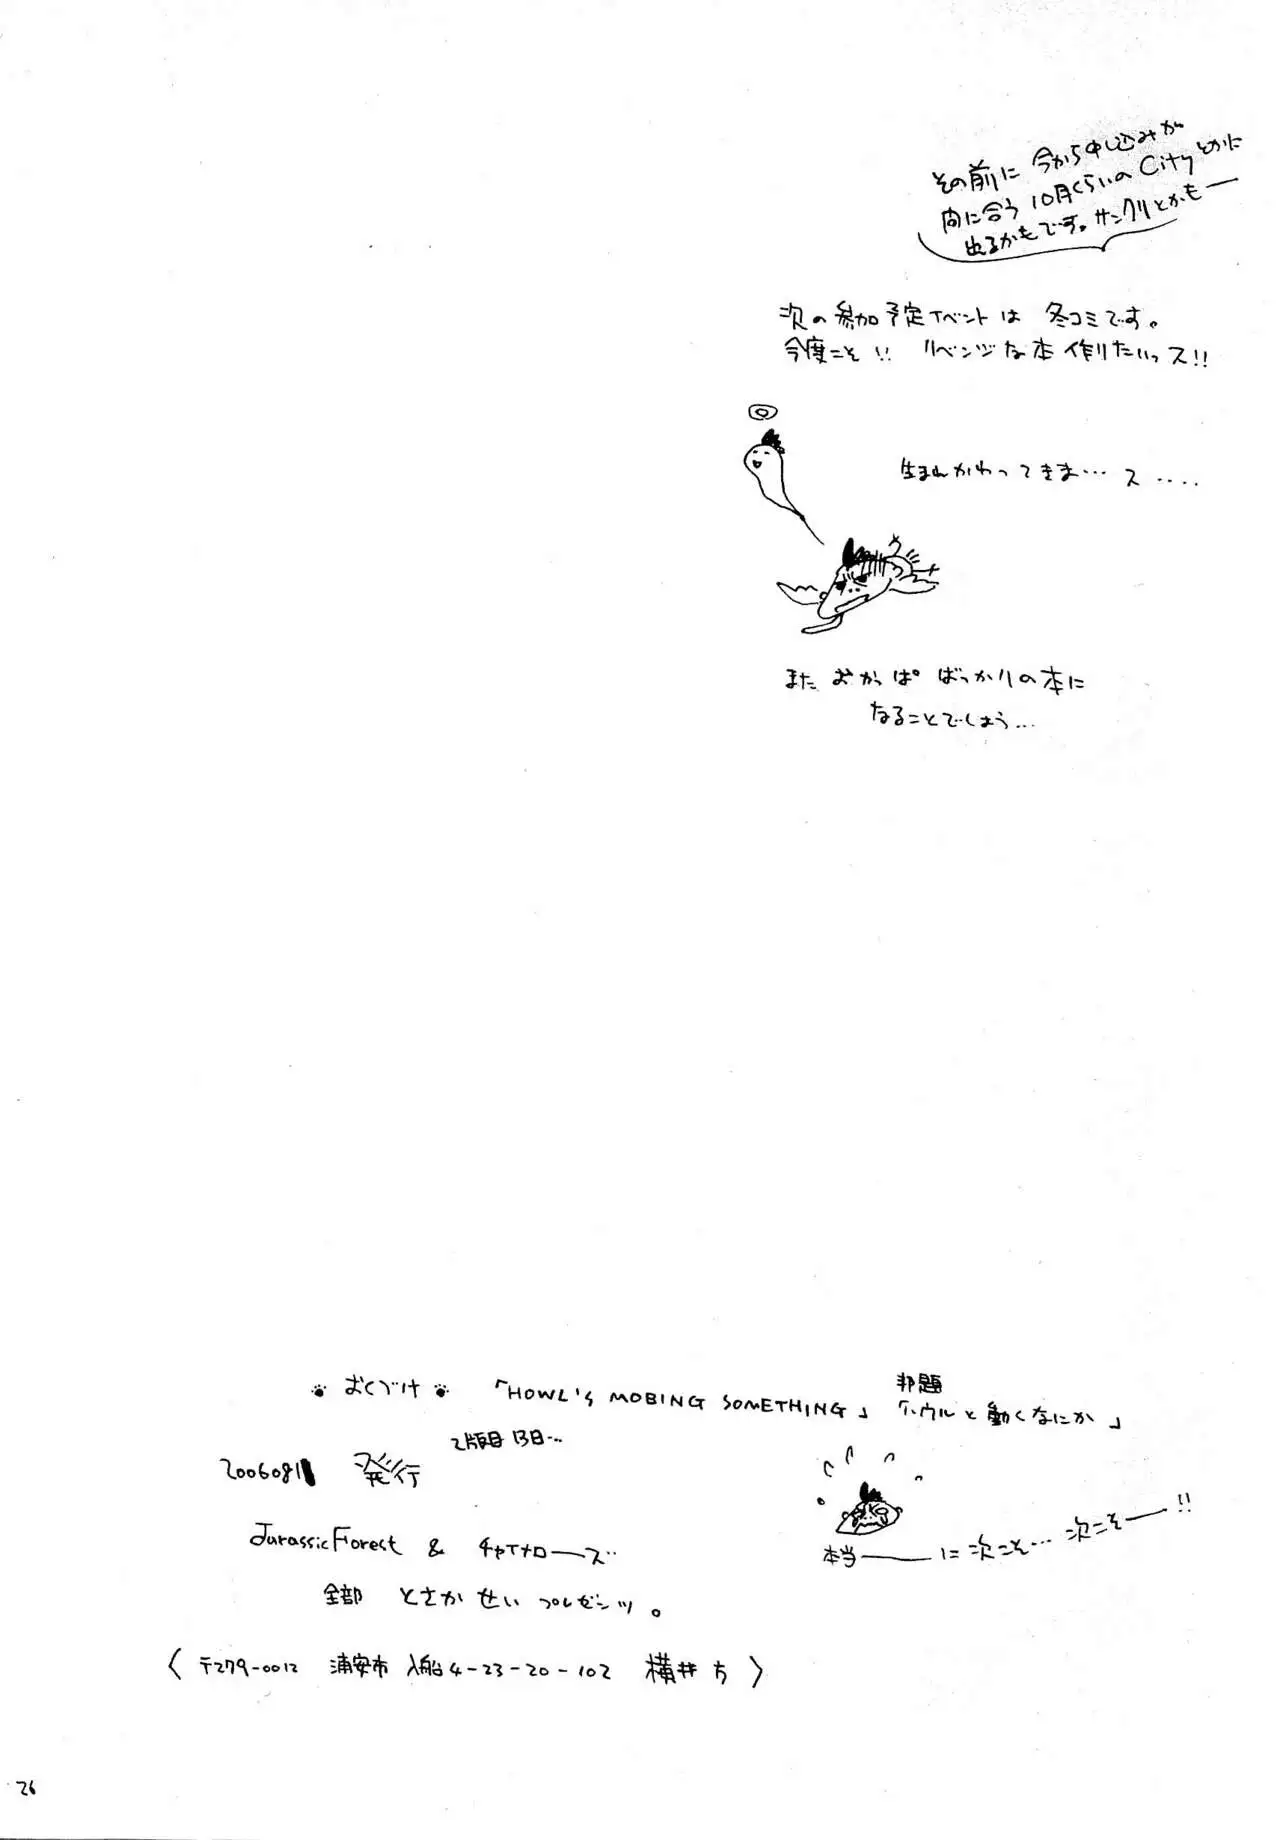 その前に 今から申し込みが
間に合う 10月くらいの Cityとかに
出るかもです。サンクリとかもー
次の参加予定イベントは 冬コミです。
今度こそ!! リベンジな本 作りたいっス!!
生まれかわってきま…ス‥‥
また おかっぱ ばっかりの本に
なることでしょう…
おくづけ 「HOWL'S MOBING SOMETHING」 邦題
「ハウルと動くなにか」
2版目 13日…
2006081 発行
JurassicForest & チャイナローズ
本当ーーに次こそ… 次こそーー!!
全部 とさかせい プレゼンツ。
〈〒279-0012 浦安市 入船4-23-20-102 横井方〉
26